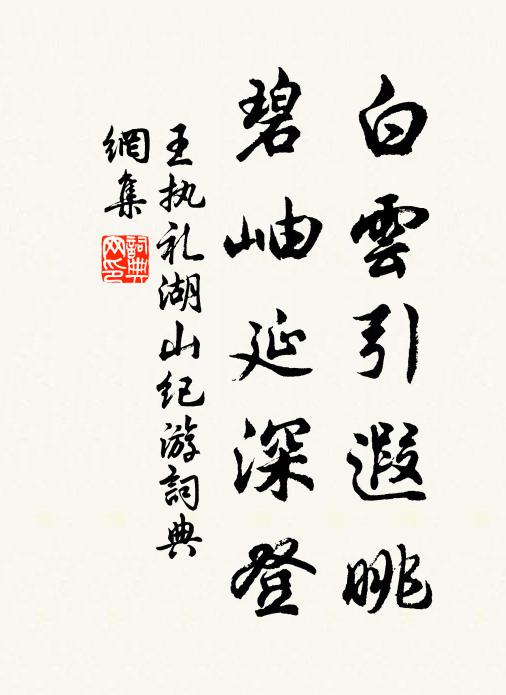 白雲引遐眺
碧岫延深登
王执礼湖山纪游詞典
網集
詞典
网印